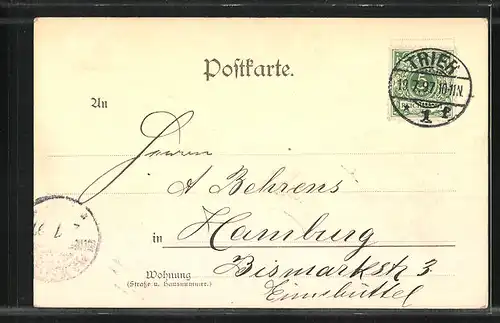 Postkarte.
TRIER
5
19.7.97.10-11N.
* 1 f
An
Herrn
A Behrens
in Hamburg
Wohnung
(Straße u. Hausnummer.)
Bismarckstr 3.
Eimsbüttel